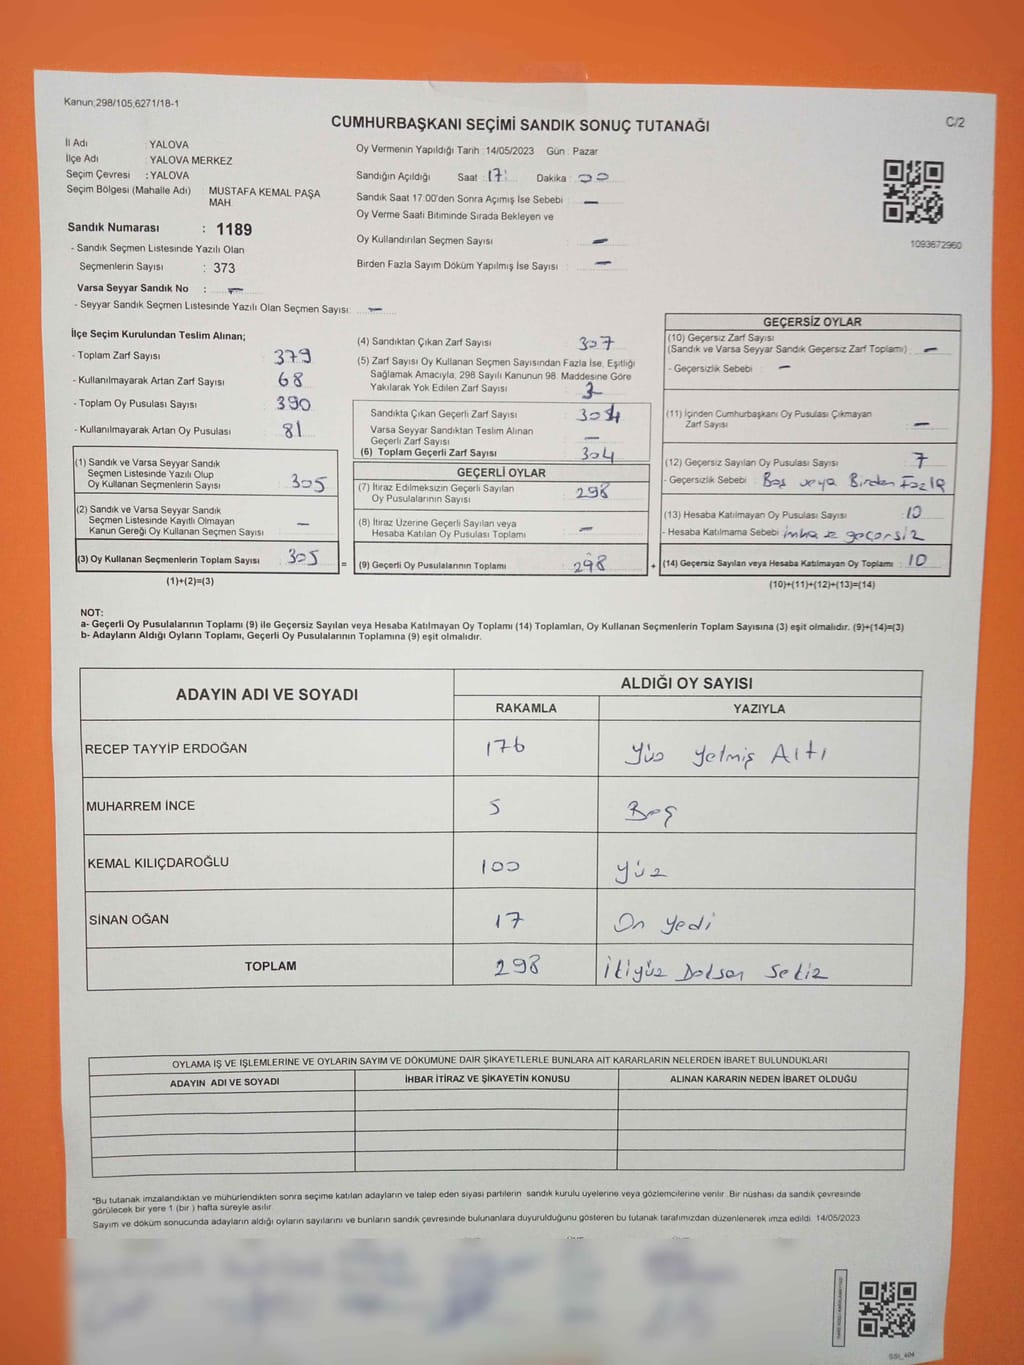 Kanun,298/105,6271/18-1
C/2
CUMHURBAŞKANI SEÇİMİ SANDIK SONUÇ TUTANAĞI
İl Adı : YALOVA
İlçe Adı : YALOVA MERKEZ
Seçim Çevresi : YALOVA
Seçim Bölgesi (Mahalle Adı) : MUSTAFA KEMAL PAŞA
MAH.
Sandık Numarası : 1189
- Sandık Seçmen Listesinde Yazılı Olan
Seçmenlerin Sayısı : 373
Varsa Seyyar Sandık No : —
- Seyyar Sandık Seçmen Listesinde Yazılı Olan Seçmen Sayısı: —
Oy Vermenin Yapıldığı Tarih :14/05/2023 Gün : Pazar
Sandığın Açıldığı Saat : 17: Dakika : 00
Sandık Saat 17:00'den Sonra Açımış İse Sebebi : —
Oy Verme Saati Bitiminde Sırada Bekleyen ve
Oy Kullandırılan Seçmen Sayısı : —
Birden Fazla Sayım Döküm Yapılmış İse Sayısı : —
1093672960
İlçe Seçim Kurulundan Teslim Alınan;
- Toplam Zarf Sayısı : 379
- Kullanılmayarak Artan Zarf Sayısı : 68
- Toplam Oy Pusulası Sayısı : 390
- Kullanılmayarak Artan Oy Pusulası : 81
(1) Sandık ve Varsa Seyyar Sandık
Seçmen Listesinde Yazılı Olup
Oy Kullanan Seçmenlerin Sayısı : 305
(2) Sandık ve Varsa Seyyar Sandık
Seçmen Listesinde Kayıtlı Olmayan
Kanun Gereği Oy Kullanan Seçmen Sayısı : —
(3) Oy Kullanan Seçmenlerin Toplam Sayısı : 305
(1)+(2)=(3)
=
(4) Sandıktan Çıkan Zarf Sayısı : 307
(5) Zarf Sayısı Oy Kullanan Seçmen Sayısından Fazla İse, Eşitliği
Sağlamak Amacıyla, 298 Sayılı Kanunun 98. Maddesine Göre
Yakılarak Yok Edilen Zarf Sayısı :
Sandıkta Çıkan Geçerli Zarf Sayısı : 304
Varsa Seyyar Sandıktan Teslim Alınan
Geçerli Zarf Sayısı : —
(6) Toplam Geçerli Zarf Sayısı : 304
GEÇERLİ OYLAR
(7) İtiraz Edilmeksizin Geçerli Sayılan
Oy Pusulalarının Sayısı : 298
(8) İtiraz Üzerine Geçerli Sayılan veya
Hesaba Katılan Oy Pusulası Toplamı : —
(9) Geçerli Oy Pusulalarının Toplamı : 298
+
GEÇERSİZ OYLAR
(10) Geçersiz Zarf Sayısı
(Sandık ve Varsa Seyyar Sandık Geçersiz Zarf Toplamı) : —
- Geçersizlik Sebebi : —
(11) İçinden Cumhurbaşkanı Oy Pusulası Çıkmayan
Zarf Sayısı : —
(12) Geçersiz Sayılan Oy Pusulası Sayısı : 7
- Geçersizlik Sebebi : Boş veya Birden Fazla
(13) Hesaba Katılmayan Oy Pusulası Sayısı : 10
- Hesaba Katılmama Sebebi : imha geçersiz
(14) Geçersiz Sayılan veya Hesaba Katılmayan Oy Toplamı : 10
(10)+(11)+(12)+(13)=(14)
NOT:
a- Geçerli Oy Pusulalarının Toplamı (9) ile Geçersiz Sayılan veya Hesaba Katılmayan Oy Toplamı (14) Toplamları, Oy Kullanan Seçmenlerin Toplam Sayısına (3) eşit olmalıdır. (9)+(14)=(3)
b- Adayların Aldığı Oyların Toplamı, Geçerli Oy Pusulalarının Toplamına (9) eşit olmalıdır.
ADAYIN ADI VE SOYADI
ALDIĞI OY SAYISI
RAKAMLA YAZIYLA
RECEP TAYYİP ERDOĞAN 176 Yüz Yetmiş Altı
MUHARREM İNCE 5 Beş
KEMAL KILIÇDAROĞLU 100 Yüz
SİNAN OĞAN 17 On Yedi
TOPLAM 298 İkiyüz Doksan Sekiz
OYLAMA İŞ VE İŞLEMLERİNE VE OYLARIN SAYIM VE DÖKÜMÜNE DAİR ŞİKAYETLERLE BUNLARA AİT KARARLARIN NELERDEN İBARET BULUNDUKLARI
ADAYIN ADI VE SOYADI İHBAR İTİRAZ VE ŞİKAYETİN KONUSU ALINAN KARARIN NEDEN İBARET OLDUĞU
*Bu tutanak imzalandıktan ve mühürlendikten sonra seçime katılan adayların ve talep eden siyasi partilerin sandık kurulu üyelerine veya gözlemcilerine verilir. Bir nüshası da sandık çevresinde
görülecek bir yere 1 (bir ) hafta süreyle asılır.
Sayım ve döküm sonucunda adayların aldığı oyların sayılarını ve bunların sandık çevresinde bulunanlara duyurulduğunu gösteren bu tutanak tarafımızdan düzenlenerek imza edildi. 14/05/2023